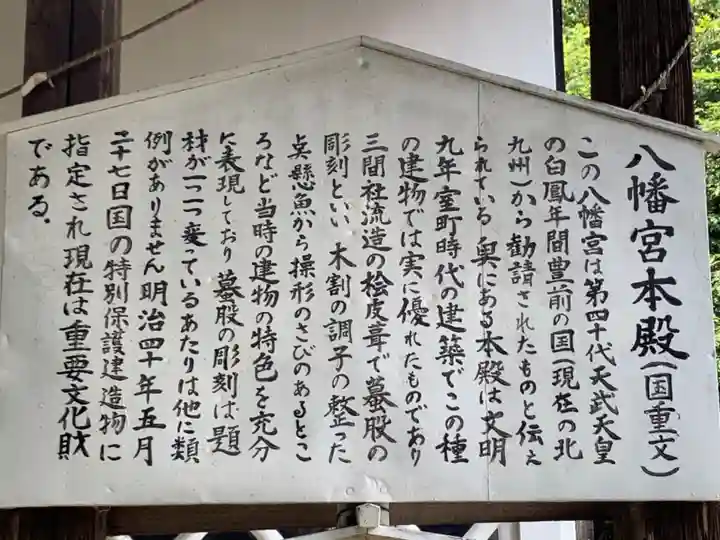 八幡宮本殿(国重文)
この八幡宮は第四十代天武天皇
の白鳳年間豊前の国(現在の北
九州)から勧請されたものと伝え
られている 奥にある本殿は文明
九年室町時代の建築でこの種
の建物では実に優れたものであり
三間社流造の桧皮葺で蟇股の
彫刻といい 木割の調子の整った
点懸魚から操形のさびのあるとこ
ろなど当時の建物の特色を充分
に表現しており 蟇股の彫刻は題
材が一つ一つ変っているあたりは他に類
例がありません明治四十年五月
二十七日国の特別保護建造物に
指定され現在は重要文化財
である.